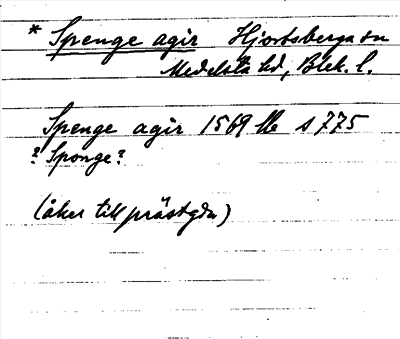 * Spenge agir Hjortsberga sn
Medelsta hd, Blek. l.
Spenge agir 1569 Mb s 775
? Sponge?
(åker till prästgdn)